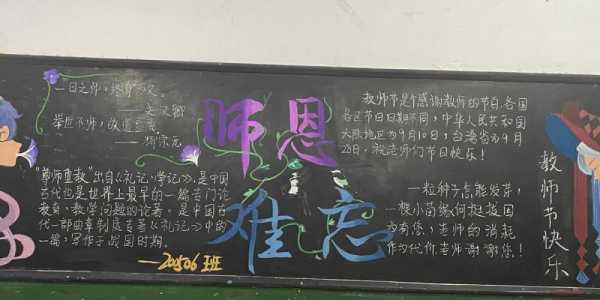 一日之师，终身为父。
——关汉卿
举世不师，故道益离
——柳宗元
"尊师重教"出自《礼记·学记》，是中国
古代也是世界上最早的一篇专门论
教育、教学问题的论著。是中国古
代一部典章制度专著《礼记》中的
一篇，写作于战国时期。
——20506班
师恩
难忘
教师节是个感谢教师的节日，各国
各区节日日期不同，中华人民共和国
大陆地区为9月10日，台湾省为9月
28日，祝老师们节日快乐！
一粒种子怎能发芽，
一棵小苗缘何挺拔，因
为有您，老师的
作为代价，老师谢谢您！
教师节快乐